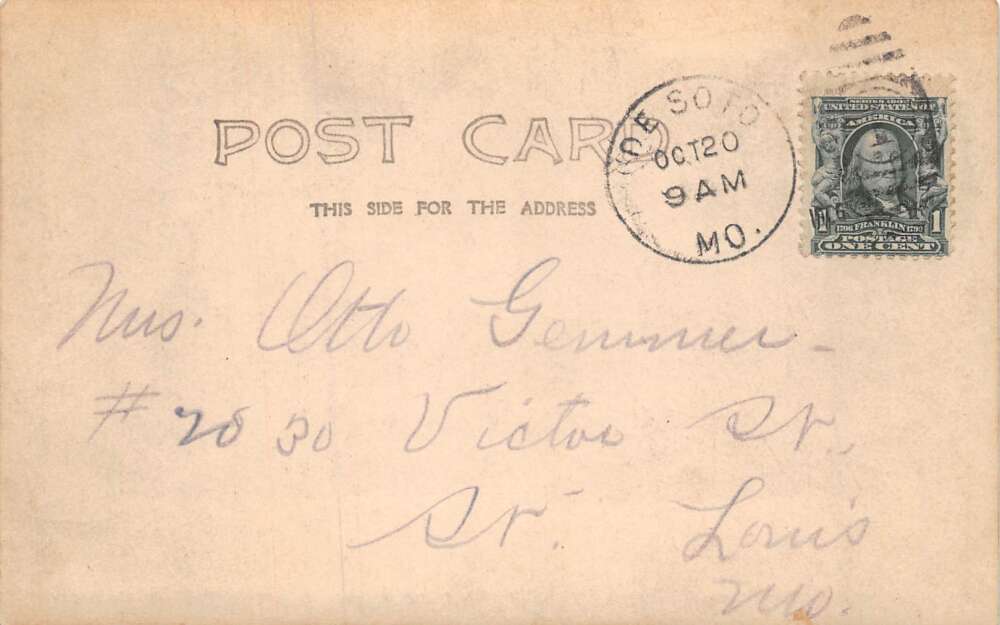 POST CARD
THIS SIDE FOR THE ADDRESS
DE SOTO
OCT 20
9 AM
MO.
SERIES 1902
UNITED STATES OF
AMERICA
1
1706 FRANKLIN 1790
POSTAGE
ONE CENT
Mrs. Otto Gemmer
# 2830 Victor St.
St. Louis
Mo.